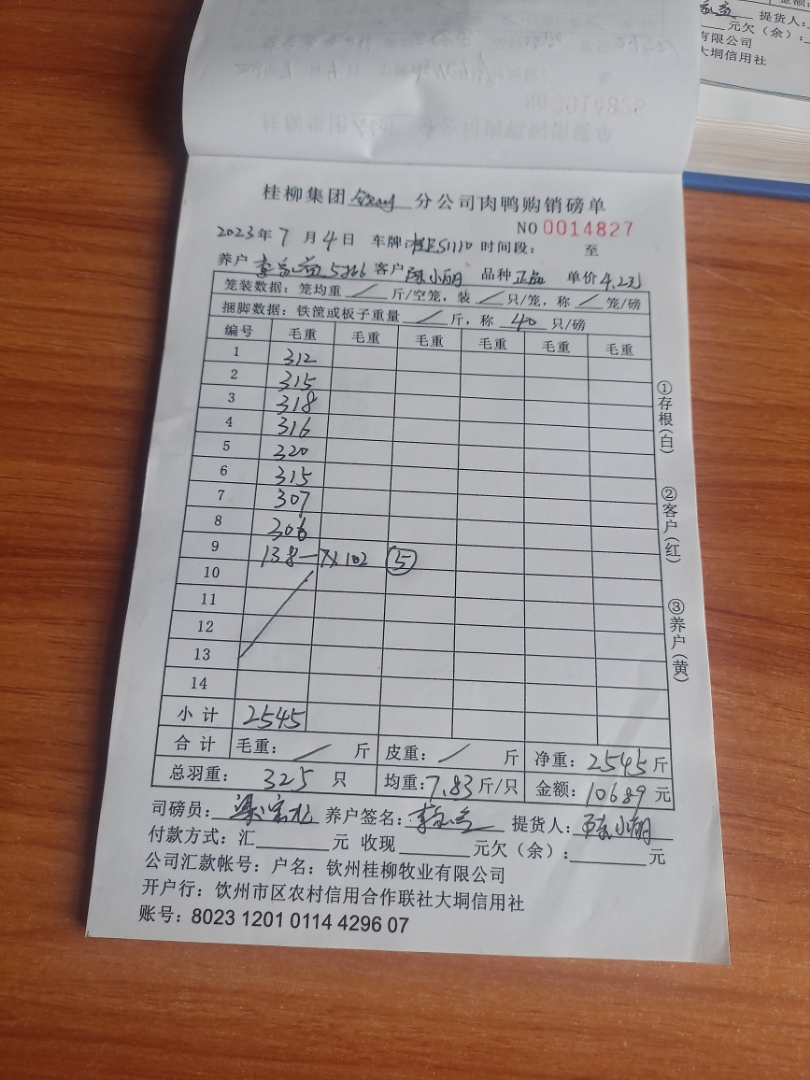 提货人:
元欠(余):
有限公司
大垌信用社
桂柳集团 钦州 分公司肉鸭购销磅单
NO 0014827
2023年 7 月 4 日 车牌: 时间段: 至
养户 客户 陈小明 品种 正品 单价 4.2元
笼装数据: 笼均重 / 斤/空笼, 装 / 只/笼, 称 / 笼/磅
捆脚数据: 铁筐或板子重量 / 斤, 称 40 只/磅
编号 毛重 毛重 毛重 毛重 毛重 毛重
1 312
2 315
3 318
4 316
5 320
6 315
7 307
8 306
9 138 5
10
11
12
13
14
小计 2545
合计 毛重: / 斤 皮重: / 斤 净重: 2545 斤
总羽重: 325 只 均重: 7.83 斤/只 金额: 10689 元
司磅员: 养户签名: 提货人: 陈小明
付款方式: 汇 元 收现 元欠(余): 元
公司汇款帐号: 户名: 钦州桂柳牧业有限公司
开户行: 钦州市区农村信用合作联社大垌信用社
账号: 8023 1201 0114 4296 07
①存根(白)
②客户(红)
③养户(黄)